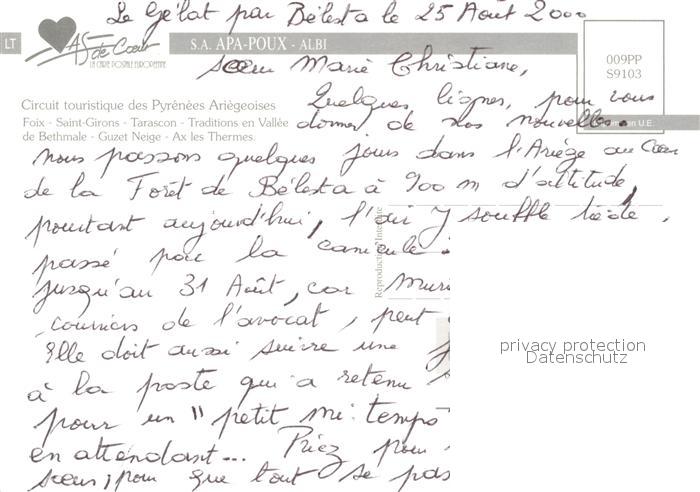 Le Gélat par Bélesta le 25 Août 2000
LT
AS de Cœur
LA CARTE POSTALE EUROPEENNE
S.A. APA-POUX - ALBI
009PP
S9103
sœur Marie Christiane,
Circuit touristique des Pyrénées Ariégeoises
Foix - Saint-Girons - Tarascon - Traditions en Vallée
de Bethmale - Guzet Neige - Ax les Thermes.
Quelques lignes, pour vous
donner de nos nouvelles.
U.E.
nous passons quelques jours dans l'Ariége au Cœur
de la Forêt de Bélesta à 900 m d'altitude,
pourtant aujourd'hui, l'air y souffle tiéde,
passé par la canicule
Reproduction Interdite
jusqu'au 31 Août, car Muri
couriers de l'avocat, peut
Elle doit aussi suivre une
à la poste qui a retenu
pour un " petit mi. temps
en attendant... Priez pour
sœur, pour que tout se pas
privacy protection
Datenschutz